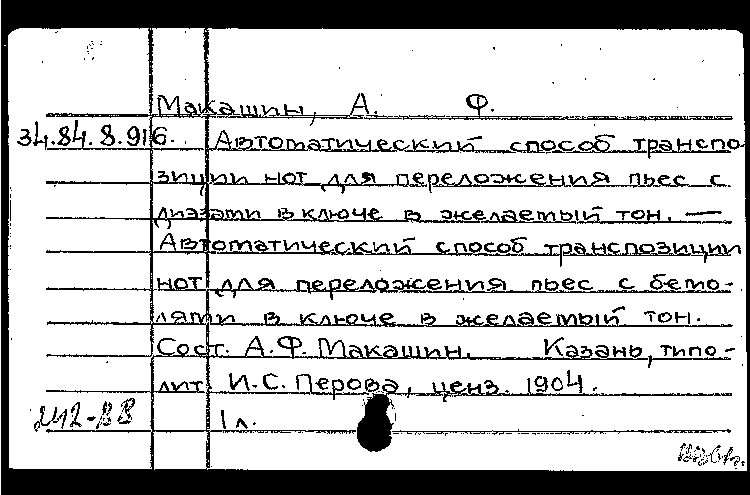 Макашин, А. Ф.
34.84.8.916. Автоматический способ транспо-
зиции нот для переложения пьес с
диэзами в ключе в желаемый тон. —
Автоматический способ транспозиции
нот для переложения пьес с бемо-
лями в ключе в желаемый тон.
Сост. А.Ф. Макашин. Казань, типо-
лит. И.С. Перова, ценз. 1904.
1 л.
242-88